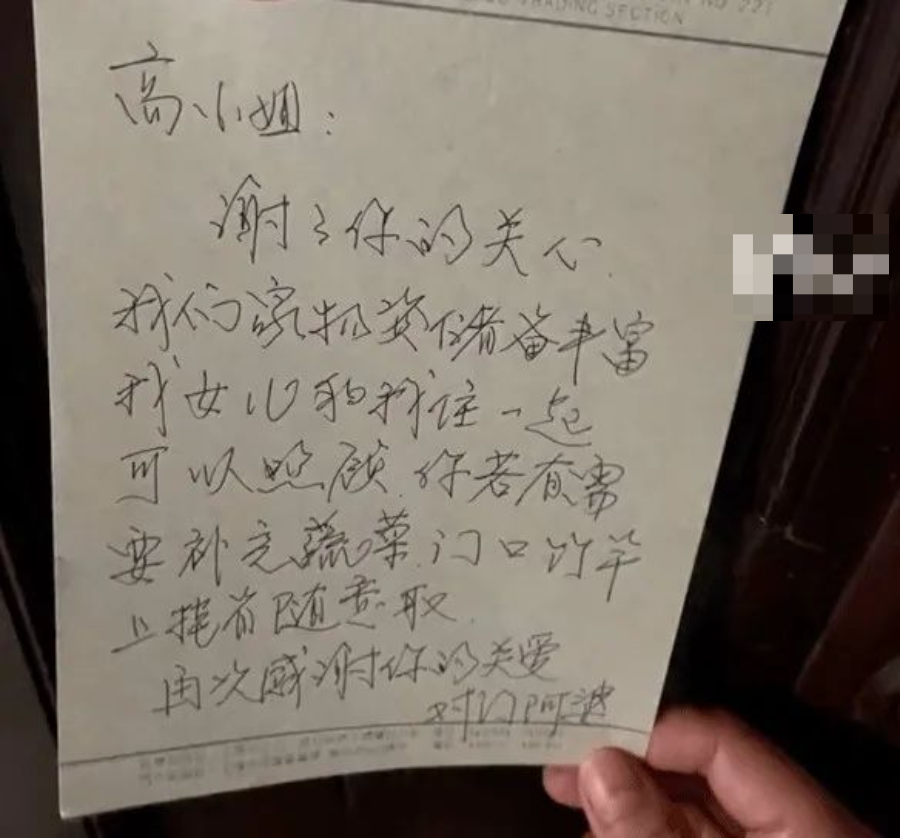 TRADING SECTION
高小姐：
谢谢你的关心.
我们家物资储备丰富
我女儿和我住一起
可以照顾.你若有需
要补充蔬菜.门口竹竿
上挂着随意取.
再次感谢你的关爱
对门阿婆